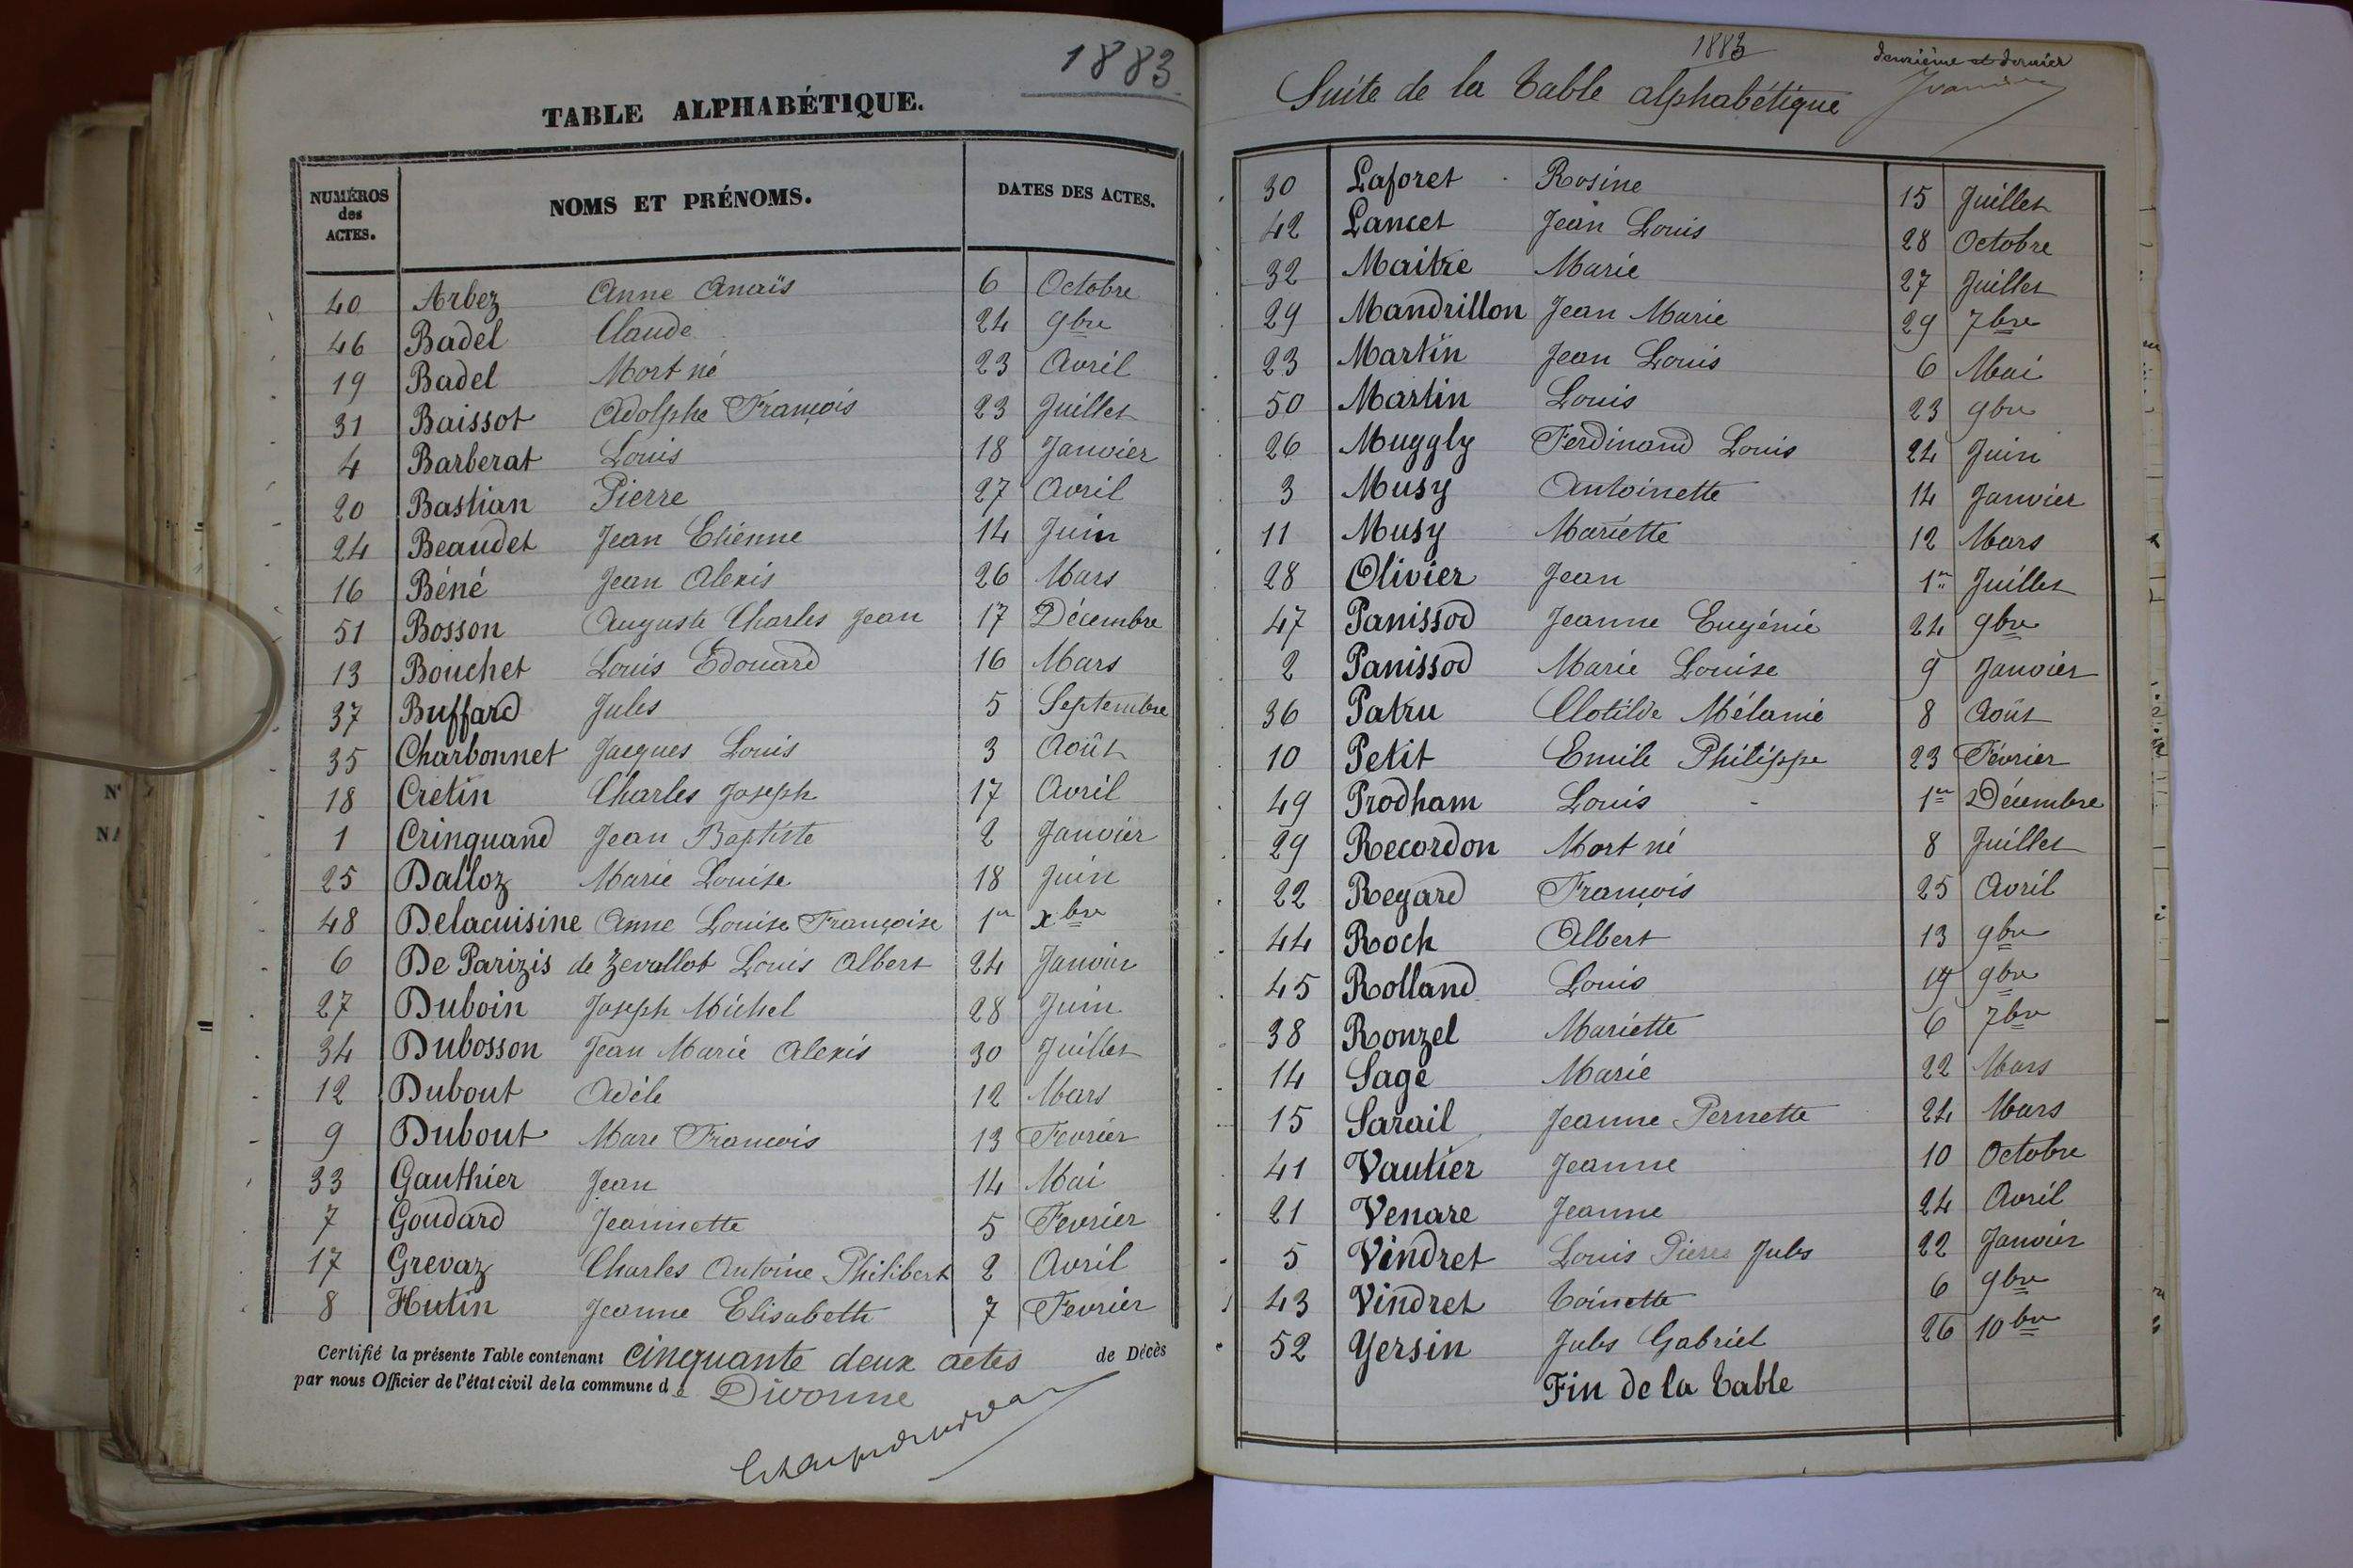 1883
TABLE ALPHABÉTIQUE.
NUMÉROS des ACTES. NOMS ET PRÉNOMS. DATES DES ACTES.
40 Arbez Anne Anaïs 6 Octobre
46 Badel Claude 24 9bre
19 Badel Mort né 23 Avril
31 Baissot Adolphe François 23 Juillet
4 Barberat Louis 18 Janvier
20 Bastian Pierre 27 Avril
24 Beaudet Jean Etienne 14 Juin
16 Béné Jean Alexis 26 Mars
51 Bosson Auguste Charles Jean 17 Décembre
13 Bouchet Louis Edouard 16 Mars
37 Buffard Jules 5 Septembre
35 Charbonnet Jacques Louis 3 Août
18 Cretin Charles Joseph 17 Avril
1 Crinquand Jean Baptiste 2 Janvier
25 Dalloz Marie Louise 18 Juin
48 Delacuisine Anne Louise Françoise 1er xbre
6 De Parizis de Zevallot Louis Albert 24 Janvier
27 Duboin Joseph Michel 28 Juin
34 Dubosson Jean Marie Alexis 30 Juillet
12 Dubout Adèle 12 Mars
9 Dubout Marc François 13 Fevrier
33 Gauthier Jean 14 Mai
7 Goudard Jeannette 5 Fevrier
17 Grevaz Charles Antoine Philibert 2 Avril
8 Hutin Jeanne Elisabeth 7 Fevrier
Certifié la présente Table contenant cinquante deux actes de Décès
par nous Officier de l'état civil de la commune de Divonne
1883
deuxième et dernier
Suite de la Table alphabétique
30 Laforet Rosine 15 Juillet
42 Lancet Jean Louis 28 Octobre
32 Maitre Marie 27 Juillet
29 Mandrillon Jean Marie 29 7bre
23 Martin Jean Louis 6 Mai
50 Martin Louis 23 9bre
26 Muggly Ferdinand Louis 24 Juin
3 Musy Antoinette 14 Janvier
11 Musy Mariette 12 Mars
28 Olivier Jean 1er Juillet
47 Panissod Jeanne Eugénie 24 9bre
2 Panissod Marie Louise 9 Janvier
36 Patru Clotilde Mélanie 8 Août
10 Petit Emile Philippe 23 Février
49 Prodham Louis 1er Décembre
29 Recordon Mort né 8 Juillet
22 Regard François 25 Avril
44 Roch Albert 13 9bre
45 Rolland Louis 19 9bre
38 Ronzel Mariette 6 7bre
14 Sage Marie 22 Mars
15 Sarail Jeanne Pernette 24 Mars
41 Vautier Jeanne 10 Octobre
21 Venare Jeanne 24 Avril
5 Vindret Louis Pierre Jules 22 Janvier
43 Vindret Toinette 6 9bre
52 Yersin Jules Gabriel 26 10bre
Fin de la Table